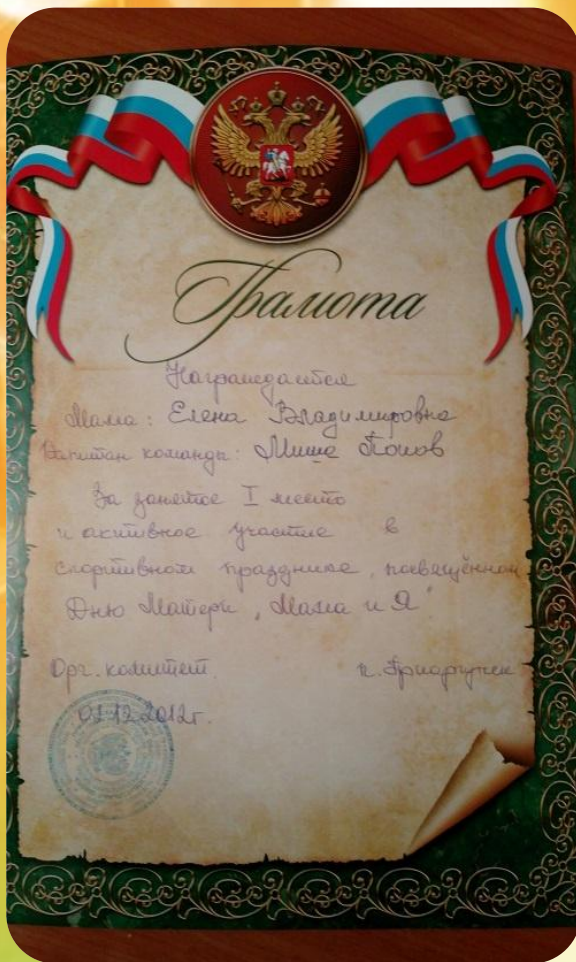 Грамота
Награждается
Мама: Елена Владимировна
Капитан команды: Миша Попов
За занятое I место
и активное участие в
спортивном празднике, посвящённом
Дню Матери „Мама и Я"
Орг. комитет п. Приаргунск
01.12.2012г.